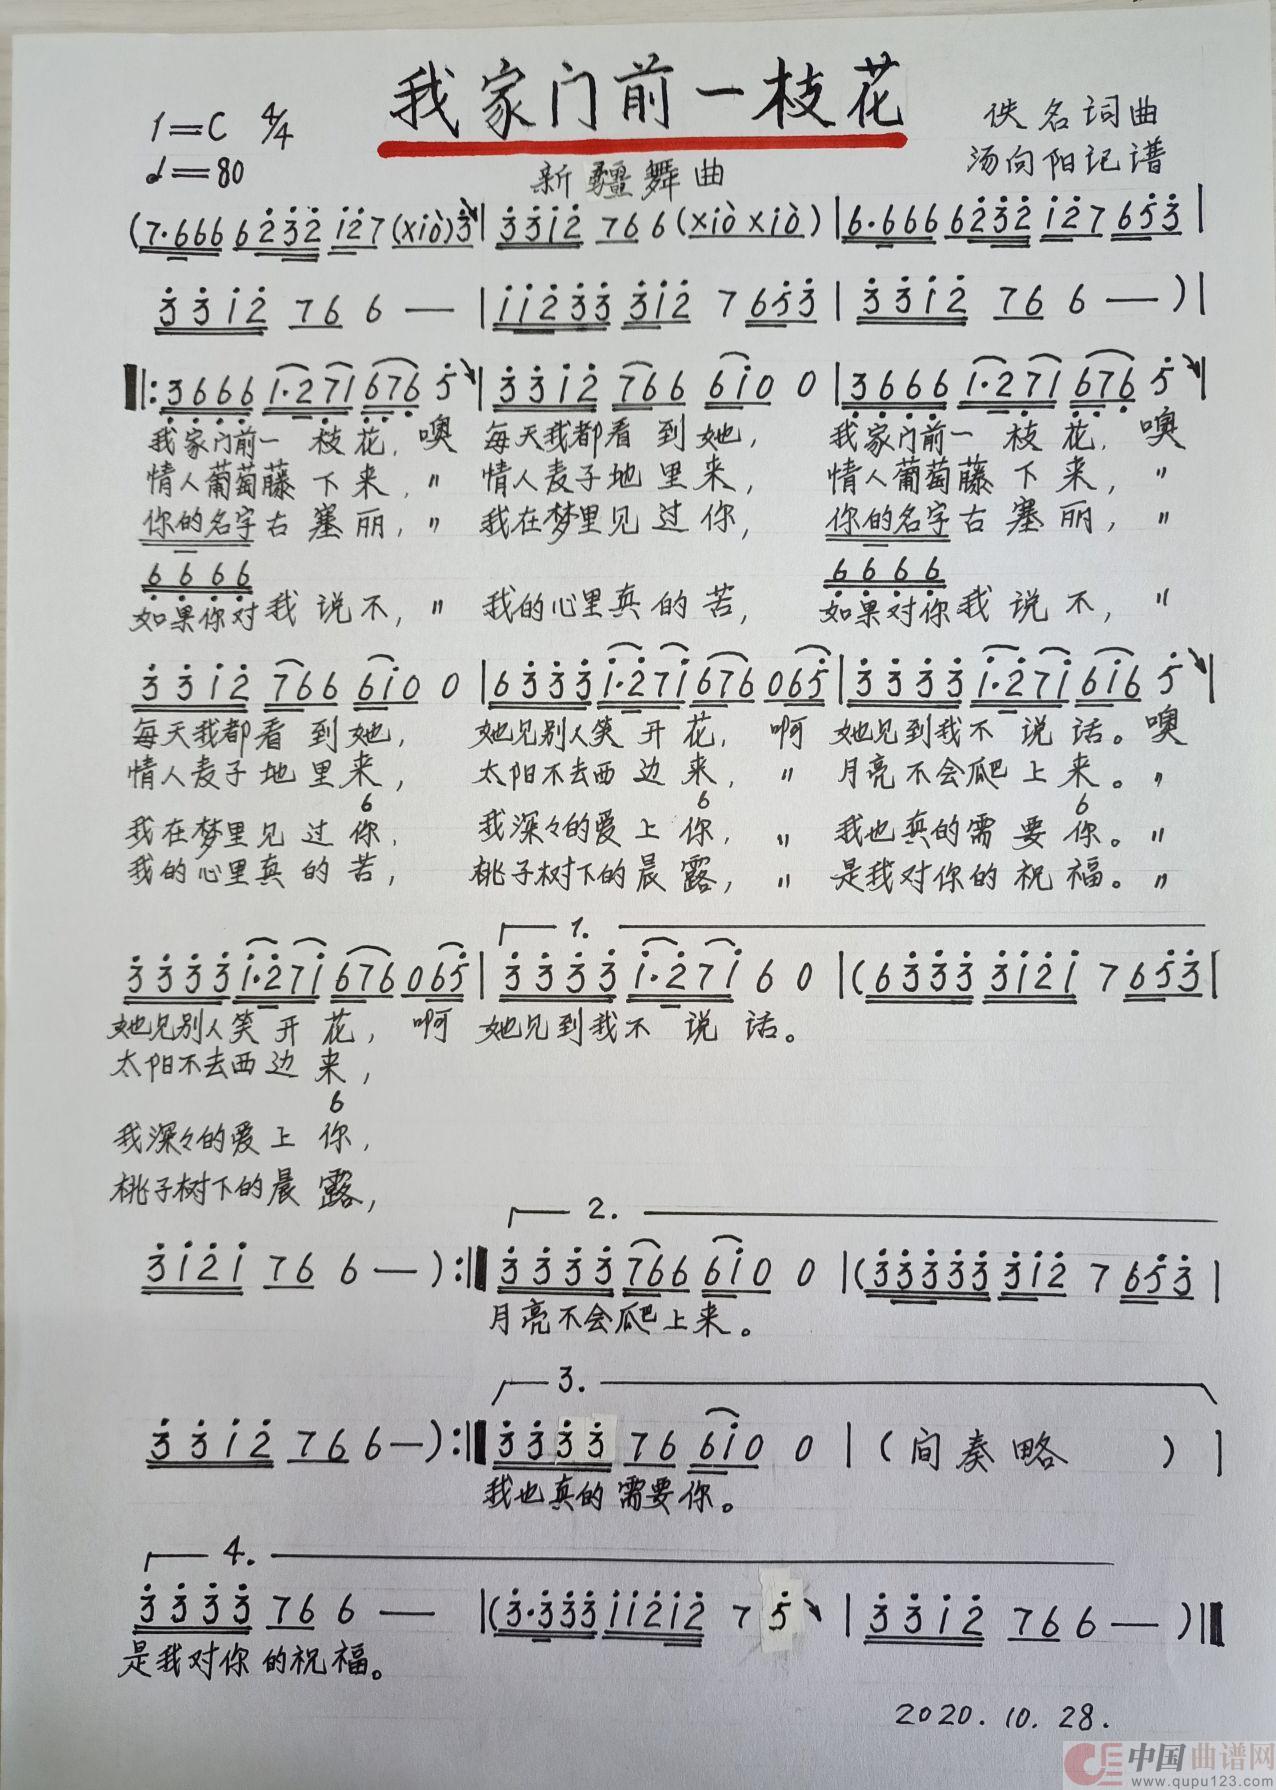 我家门前一枝花
1=C 4/4
佚名词曲
♩=80
新疆舞曲
汤向阳记谱
(7·666 62̇3̇2̇ 1̇2̇7 (xiò)3̇ | 3̇3̇1̇2̇ 766 (xiò xiò) | 6·666 62̇3̇2̇ 1̇2̇7 65̇3̇ |
3̇3̇1̇2̇ 76 6 — | 1̇1̇2̇3̇3̇ 3̇1̇2̇ 7 65̇3̇ | 3̇3̇1̇2̇ 76 6 — ) |
‖: 3666 1·271 676 5̇ | 3̇3̇1̇2̇ 766 61̇0 0 | 3666 1·271 676 5̇ |
我家门前一 枝花, 噢 每天我都看到她, 我家门前一 枝花, 噢
情人葡萄藤下来, 〃 情人麦子地里来, 情人葡萄藤下来, 〃
你的名字古塞丽, 〃 我在梦里见过你, 你的名字古塞丽, 〃
6666 6666
如果你对我说不, 〃 我的心里真的苦, 如果对你我说不, 〃
3̇3̇1̇2̇ 766 61̇0 0 | 63̇3̇3̇ 1̇·2̇71̇ 676 065̇ | 3̇3̇3̇3̇ 1̇·2̇71̇ 61̇6 5̇ |
每天我都看到她, 她见别人笑开花, 啊 她见到我不说话。噢
情人麦子地里来, 太阳不去西边来, 〃 月亮不会爬上来。〃
6 6 6
我在梦里见过你, 我深々的爱上你, 〃 我也真的需要你。〃
我的心里真的苦, 桃子树下的晨露, 〃 是我对你的祝福。〃
1.
3̇3̇3̇3̇ 1̇·2̇71̇ 676 065̇ | 3̇3̇3̇3̇ 1̇·2̇71̇ 6 0 | (63̇3̇3̇ 3̇1̇2̇1̇ 7 65̇3̇ |
她见别人笑开花, 啊 她见到我不说话。
太阳不去西边来,
6
我深々的爱上你,
桃子树下的晨露,
2.
3̇1̇2̇1̇ 76 6 — ) :‖ 3̇3̇3̇3̇ 766 61̇0 0 | (3̇3̇3̇3̇3̇ 3̇1̇2̇ 7 65̇3̇ |
月亮不会爬上来。
3.
3̇3̇1̇2̇ 766 — ) :‖ 3̇3̇3̇3̇ 76 61̇0 0 | (间奏略) |
我也真的需要你。
4.
3̇3̇3̇3̇ 76 6 — | (3̇·3̇3̇3̇ 1̇1̇2̇1̇2̇ 7 5̇ | 3̇3̇1̇2̇ 766 — ) ‖
是我对你的祝福。
2020.10.28.
中国曲谱网
www.qupu123.com